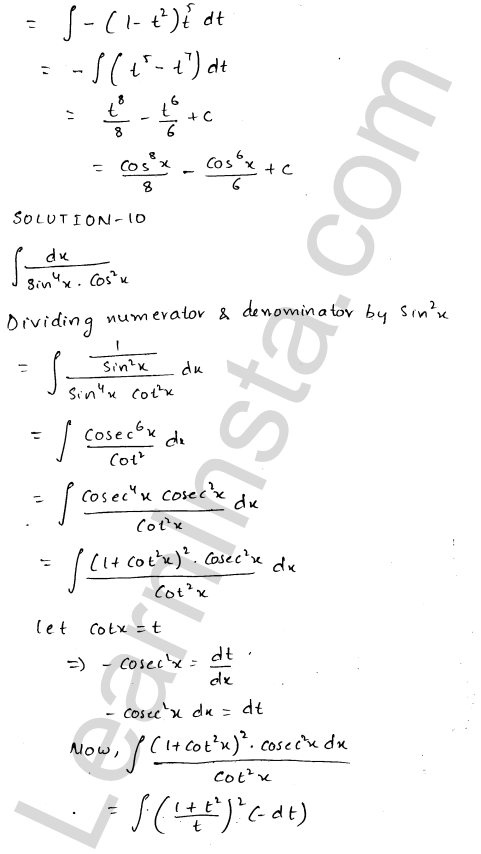 = ∫ - (1 - t²) t⁵ dt
= - ∫ (t⁵ - t⁷) dt
= t⁸/8 - t⁶/6 + c
= cos⁸x/8 - cos⁶x/6 + c
SOLUTION-10
∫ dx/(sin⁴x . cos²x)
Dividing numerator & denominator by sin²x
= ∫ (1/sin²x)/(sin⁴x cot²x) dx
= ∫ cosec⁶x/cot² dx
= ∫ (cosec⁴x cosec²x)/cot²x dx
= ∫ ((1+cot²x)² . cosec²x)/cot²x dx
let cotx = t
=) - cosec²x = dt/dx
- cosec²x dx = dt
Now, ∫ ((1+cot²x)² . cosec²x dx)/cot²x
= ∫ ((1+t²)/t)² (-dt)
LearnInsta.com